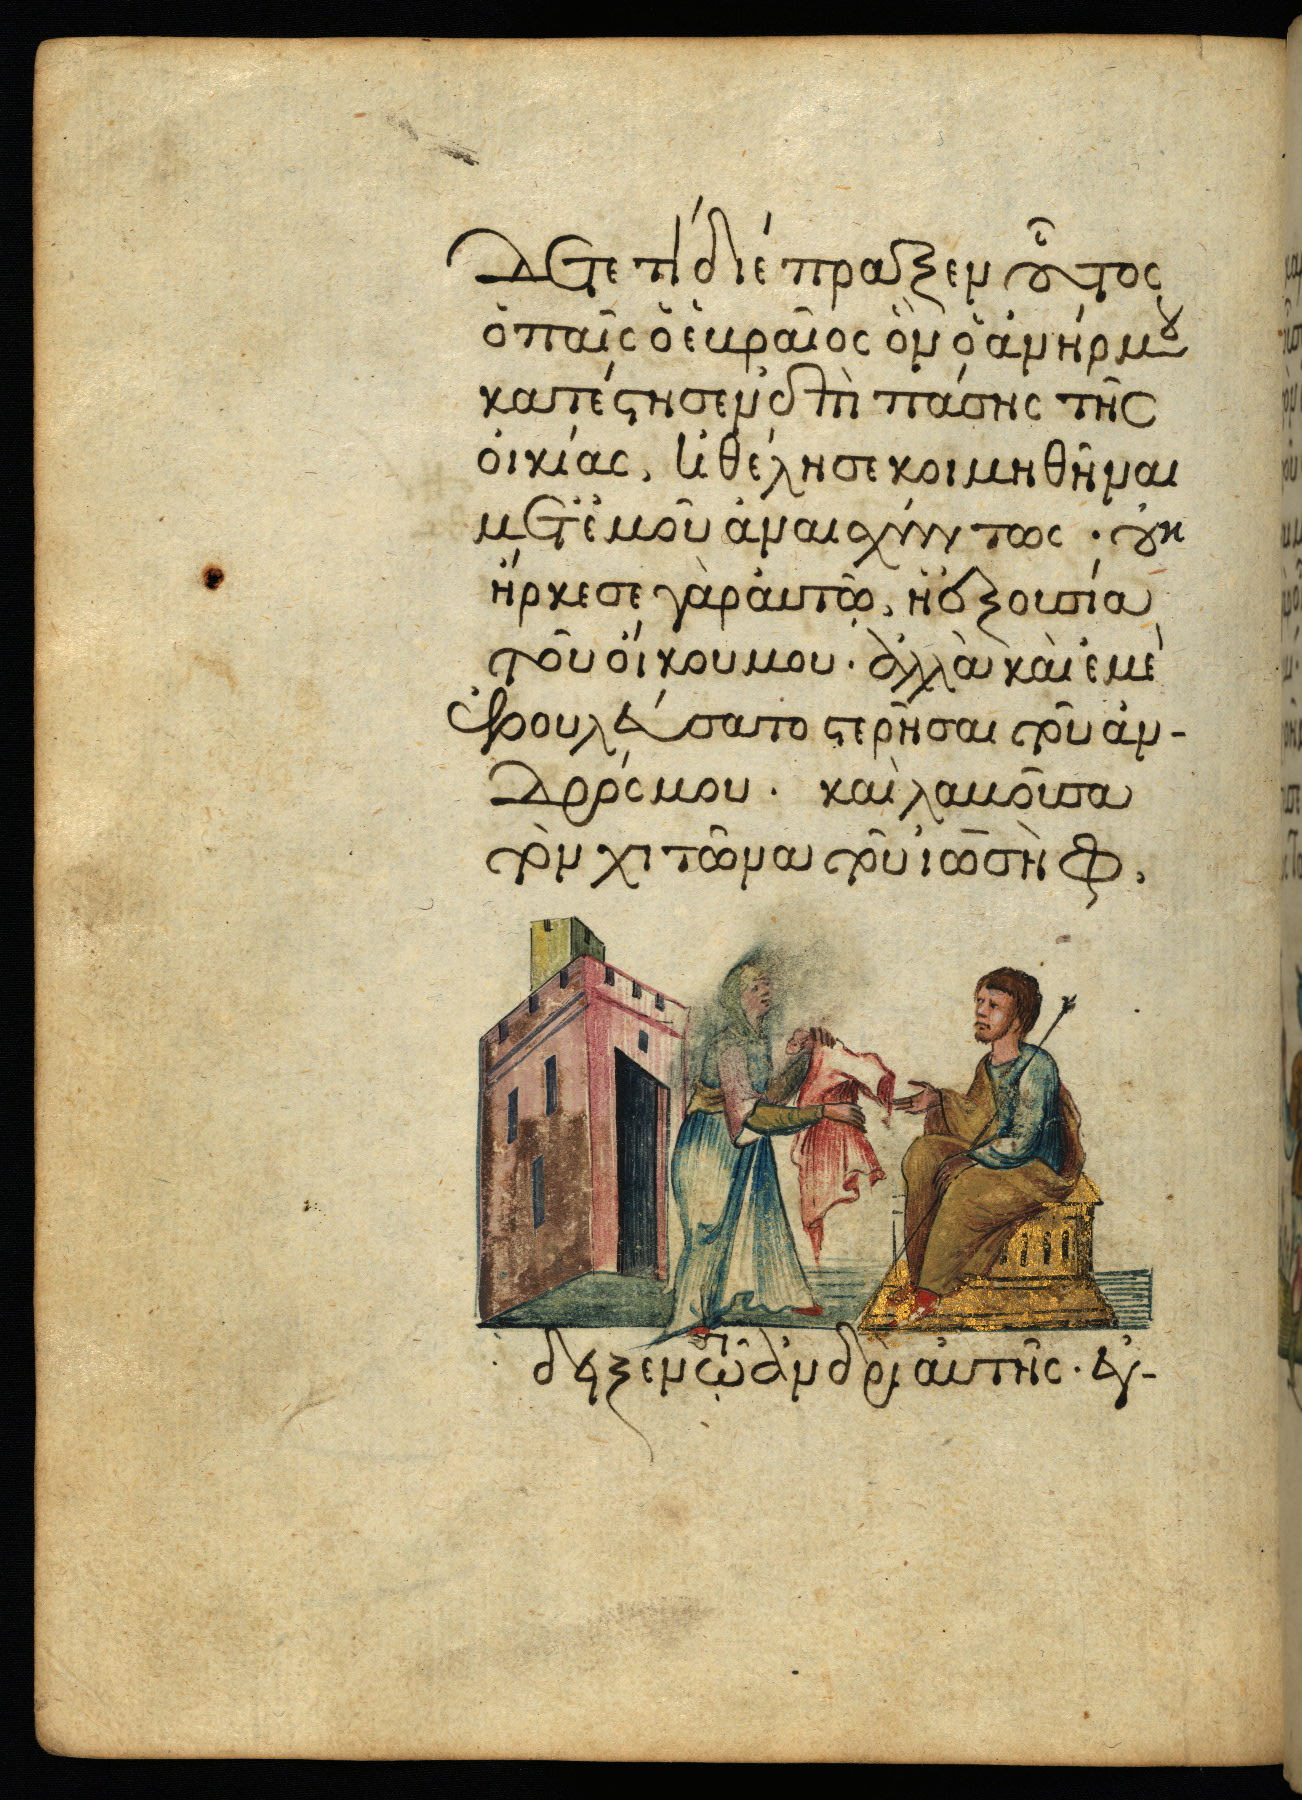 δετε τί διέπραξεν οὗτος
ὁ παῖς ὁ ἑκραῖος ὃν ὁ ἀνήρ μου
κατέστησεν ἐπὶ πάσης τῆς
οἰκίας, ἠθέλησε κοιμηθῆναι
μετ' ἐμοῦ ἀναισχύντως · οὐκ
ἤρκεσε γὰρ αὐτῶ, ἡ ἐξουσία
τοῦ οἴκου μου · ἀλλὰ καὶ ἐμὲ
ἐβουλεύσατο στερῆσαι τοῦ ἀν-
δρός μου · καὶ λαβοῦσα
τὸν χιτῶνα τοῦ ἰωσὴφ,
ἔδειξεν τῶ ἀνδρὶ αὐτῆς · εὐ-